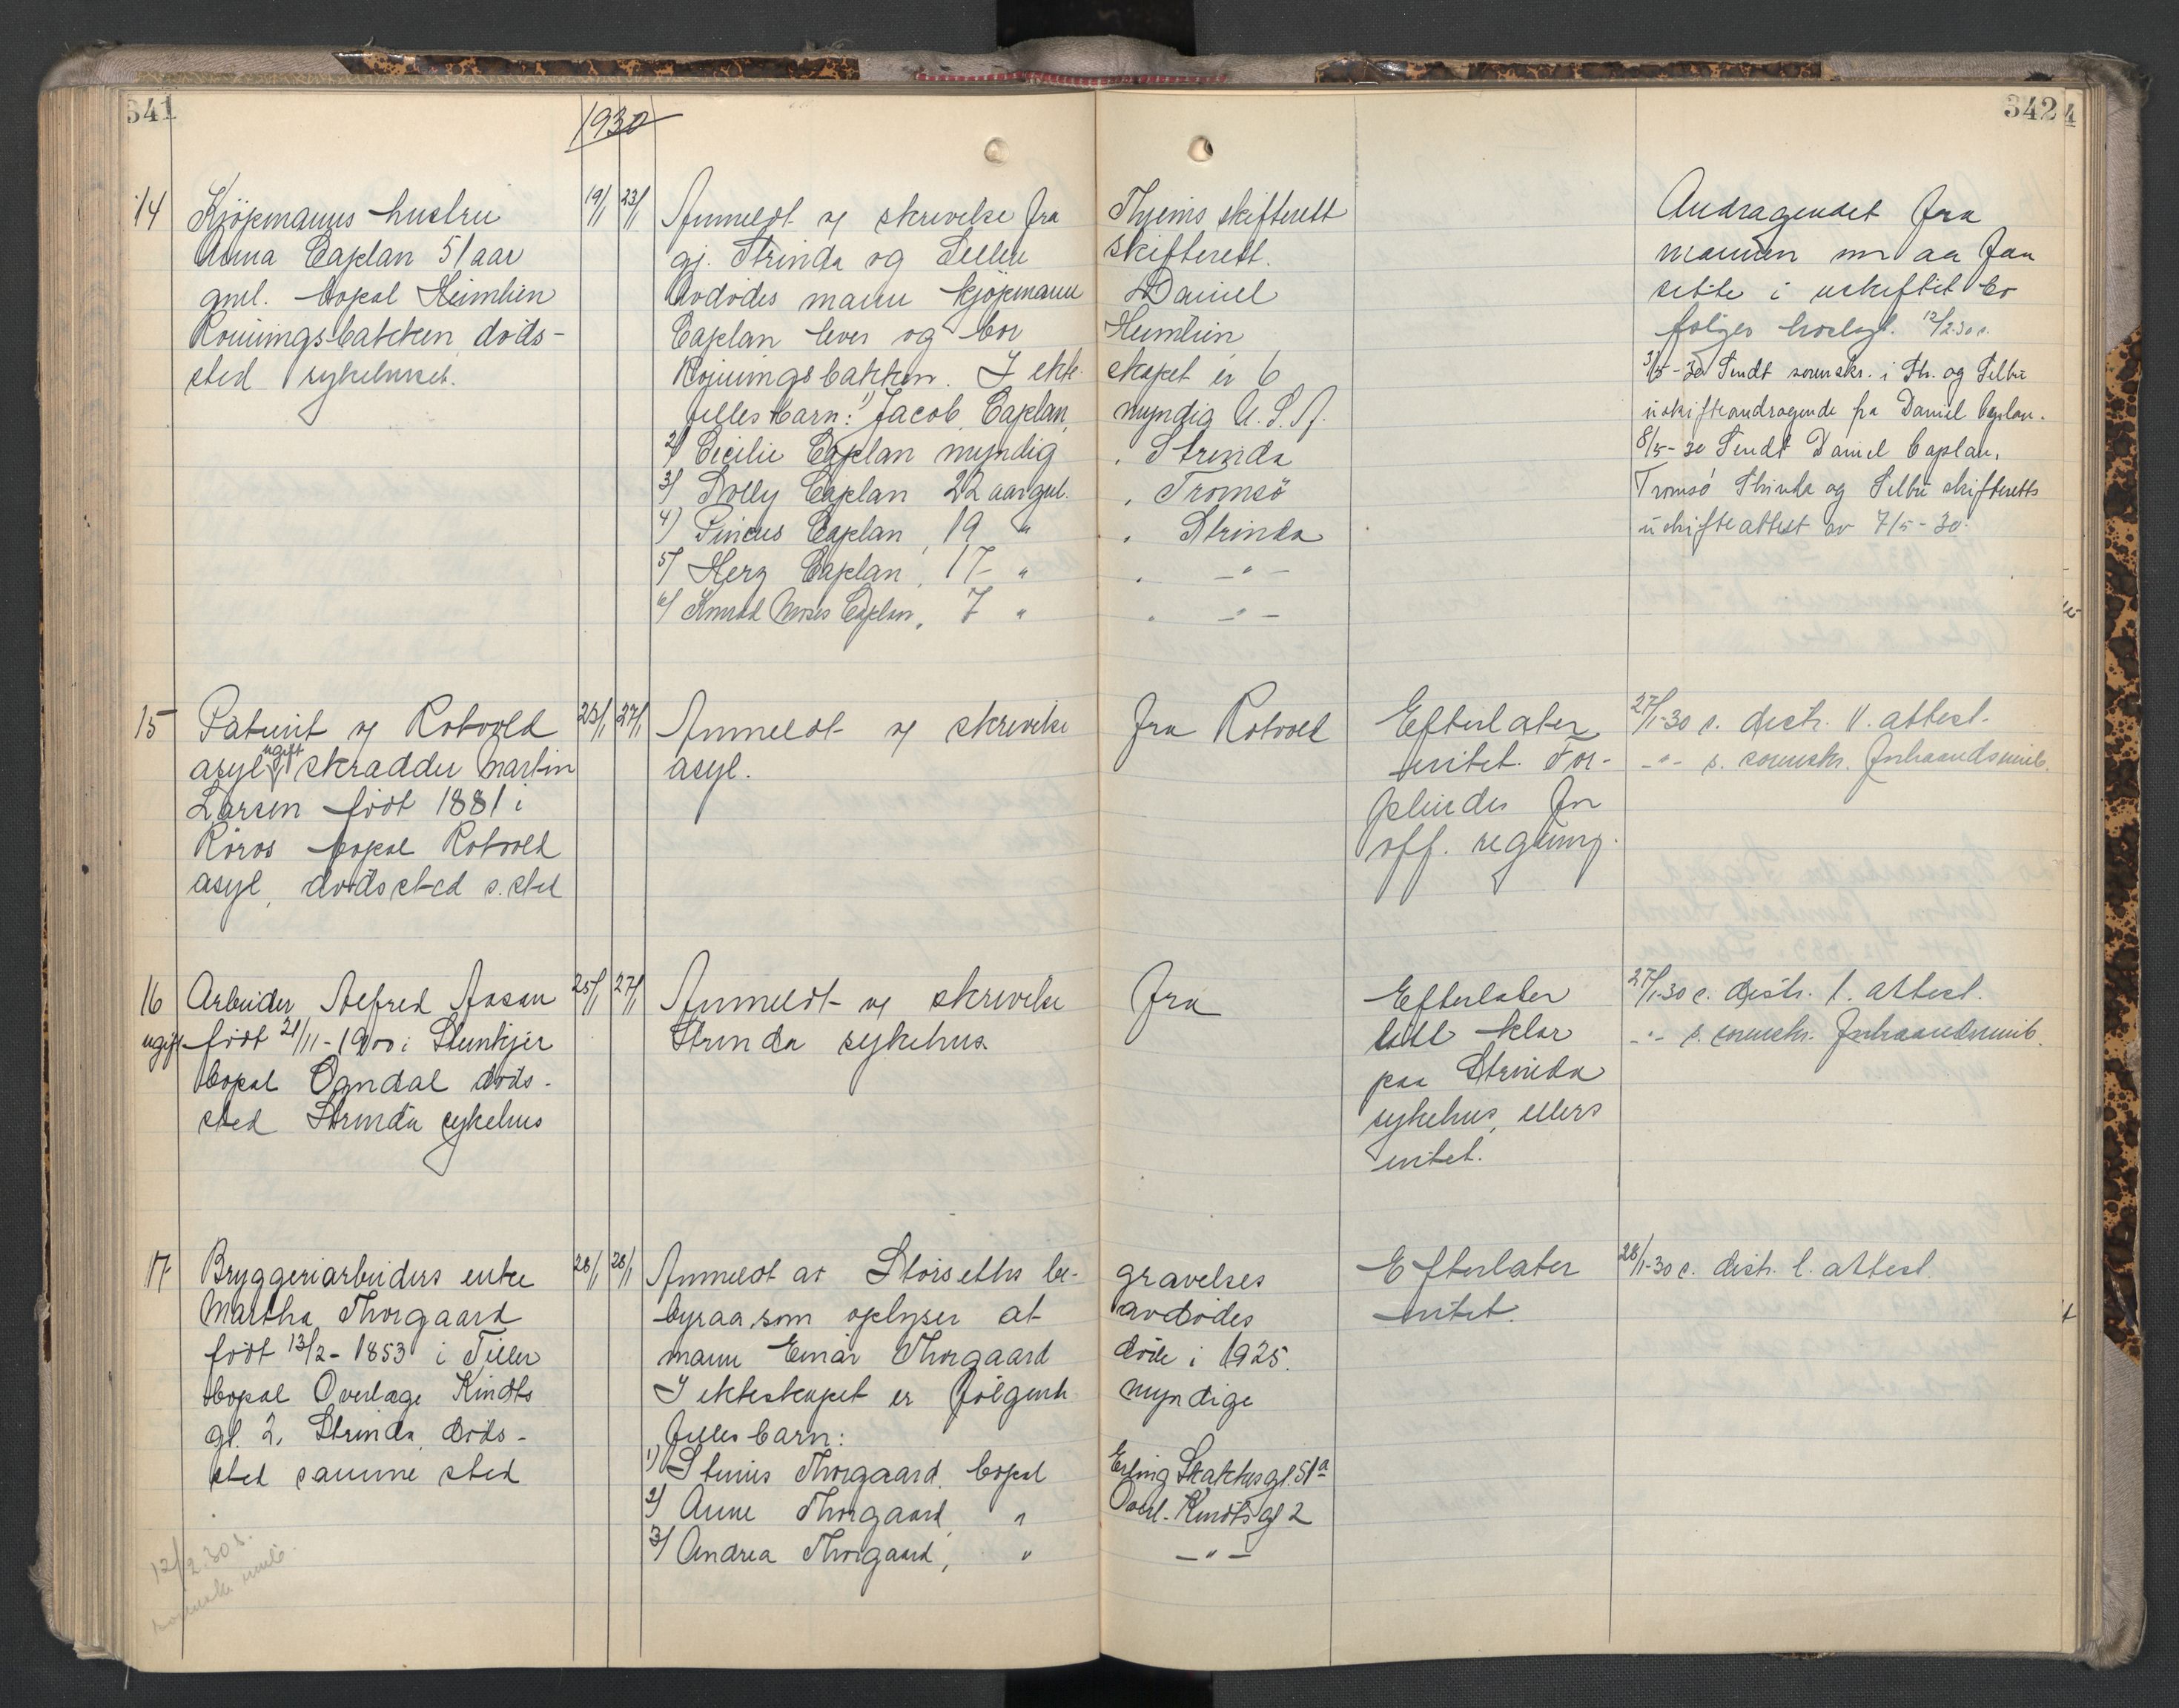 341
1930
342
4
14
Kjöpmanns hustru
Anna Caplan 51 aar
gml. bopæl Heimlien
Rönningsbakken döds-
sted sykehuset.
19/1 23/1
Anmeldt ved skrivelse fra Thjems skifterett
gj. Strinda og Selbu skifterett.
Avdödes mann kjöpmann Daniel
Caplan lever og bor Heimlien
Rönningsbakken. I ekte- skapet er 6
felles barn: 1) Jacob Caplan, myndig U.S.A.
2) Cecilie Caplan myndig , Strinda
3) Dolly Caplan 22 aar gml. , Tromsö
4) Pincus Caplan, 19 " , Strinda
5) Herz Caplan, 17 " , -"-
6) Konrad Moses Caplan, 7 " , -"-
Andragendet fra
mannen om aa faa
sitte i uskiftet bo
følger 12/2.30 s.
3/5-30 Sendt sorenskr. i Str. og Selbu
uskifteandragende fra Daniel Caplan.
8/5-30 Sendt Daniel Caplan,
Tromsö Strinda og Selbu skifteretts
uskifteattest av 7/5-30.
15
Patient ved Rotvold
asyl ugift skrædder Martin
Larsen födt 1881 i
Röros bopæl Rotvold
asyl, dödssted s. sted
25/1 27/1
Anmeldt ved skrivelse fra Rotvold
asyl.
Efterlater
intet. For-
pleiedes for
off. regning.
27/1-30 s. distr. l. attest.
-"- s. sorenskr. forhaandsmeld.
16
ugift
Arbeider Alfred Aasan
födt 21/11-1900 i Stenkjer
bopæl Ogndal döds-
sted Strinda sykehus
25/1 27/1
Anmeldt ved skrivelse fra
Strinda sykehus.
Efterlater
litt klær
paa Strinda
sykehus, ellers
intet.
27/1-30 s. distr. l. attest.
-"- s. sorenskr. forhaandsmeld.
17
Bryggeriarbeiders enke
Martha Thorgaard
födt 13/2-1853 i Tiller
bopæl Overlæge Kindts
gt. 2, Strinda, döds-
sted samme sted
28/1 28/1
Anmeldt av Storseths be- gravelses
byraa, som oplyser at avdödes
mann Einar Thorgaard döde i 1925.
I ekteskapet er følgende myndige
felles barn:
1) Thorgaard, bopæl Erling Skakkes gt. 51a
2) Anne Thorgaard, " Overl. Kindts gt 2
3) Andrea Thorgaard, " -"-
Efterlater
intet.
28/1-30 s. distr. l. attest.
12/2.30 s.
sorenskr.